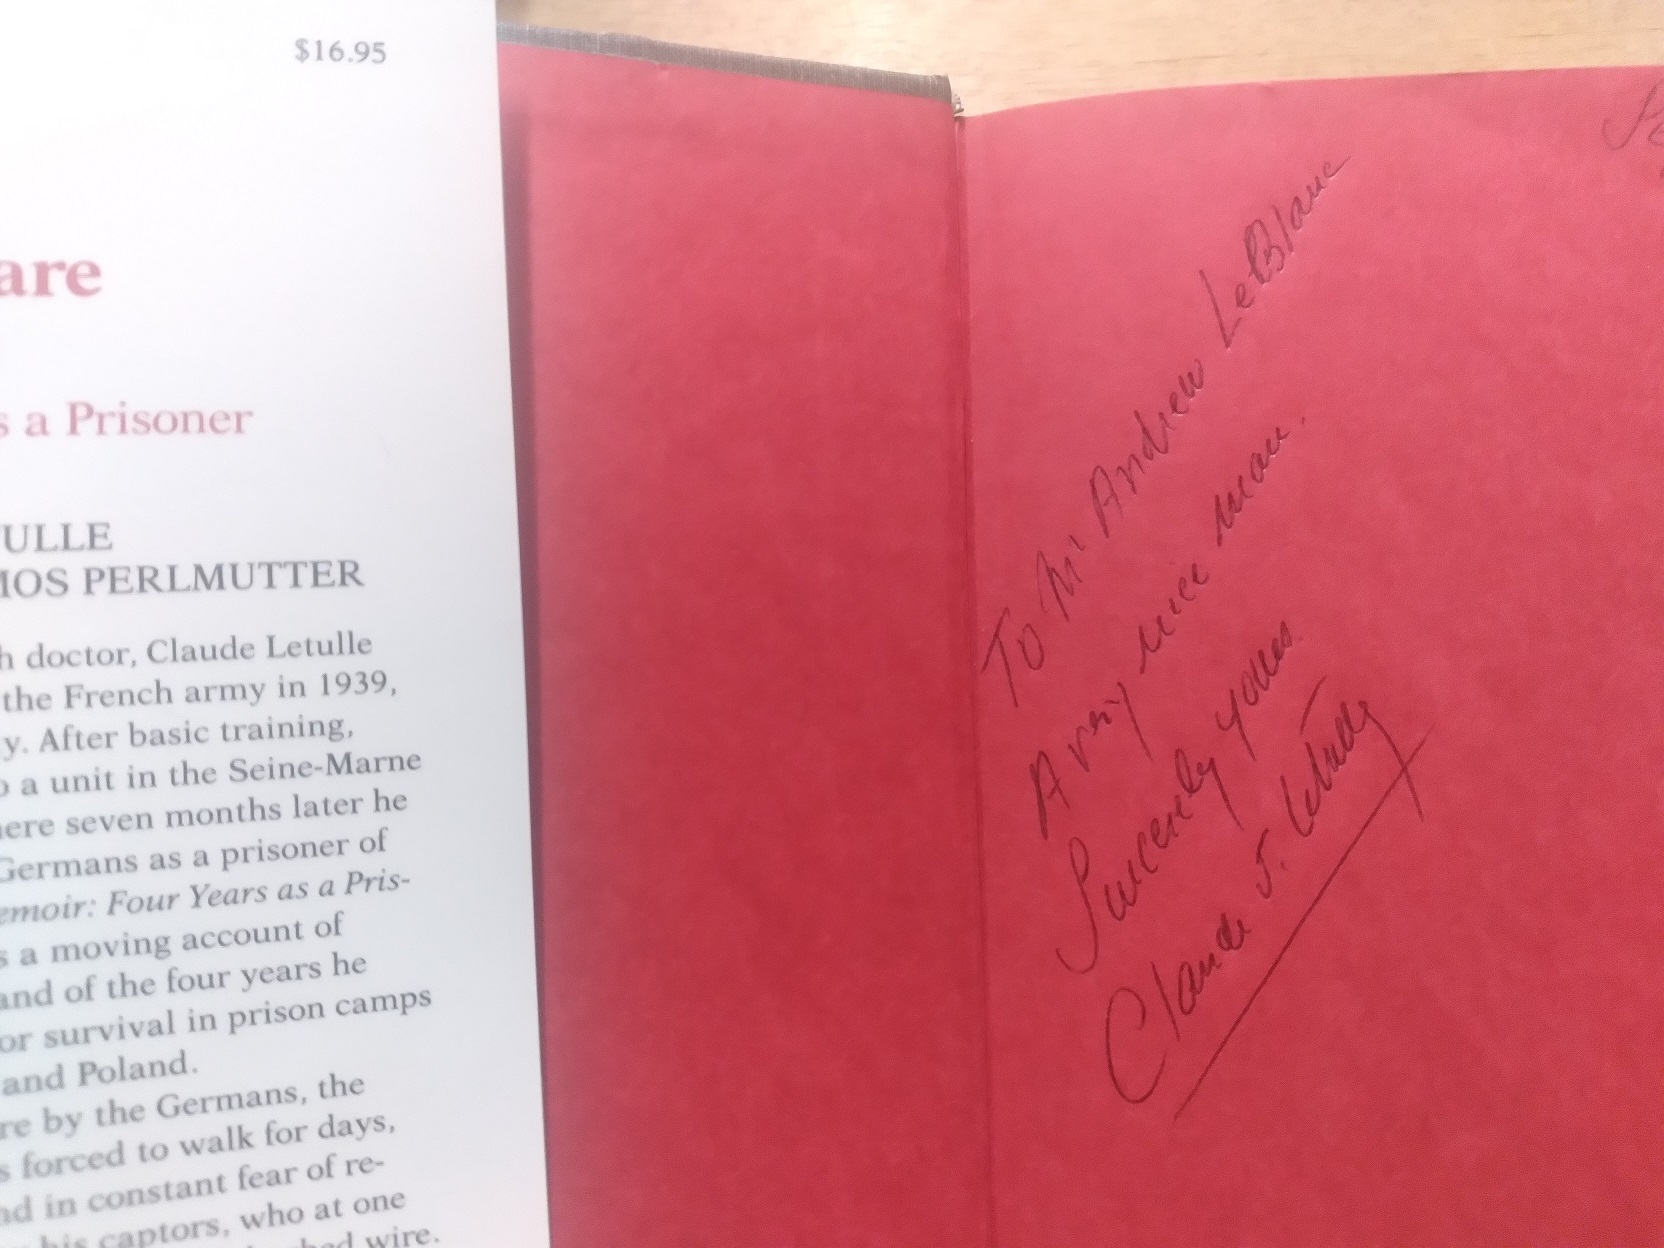 $16.95
are
s a Prisoner
ULLE
MOS PERLMUTTER
h doctor, Claude Letulle
the French army in 1939,
y. After basic training,
o a unit in the Seine-Marne
here seven months later he
Germans as a prisoner of
emoir: Four Years as a Pris-
s a moving account of
and of the four years he
or survival in prison camps
and Poland.
re by the Germans, the
s forced to walk for days,
nd in constant fear of re-
his captors, who at one
wire.
To Mr Andrew LeBlanc
A very nice man.
Sincerely yours
Claude J. Letulle